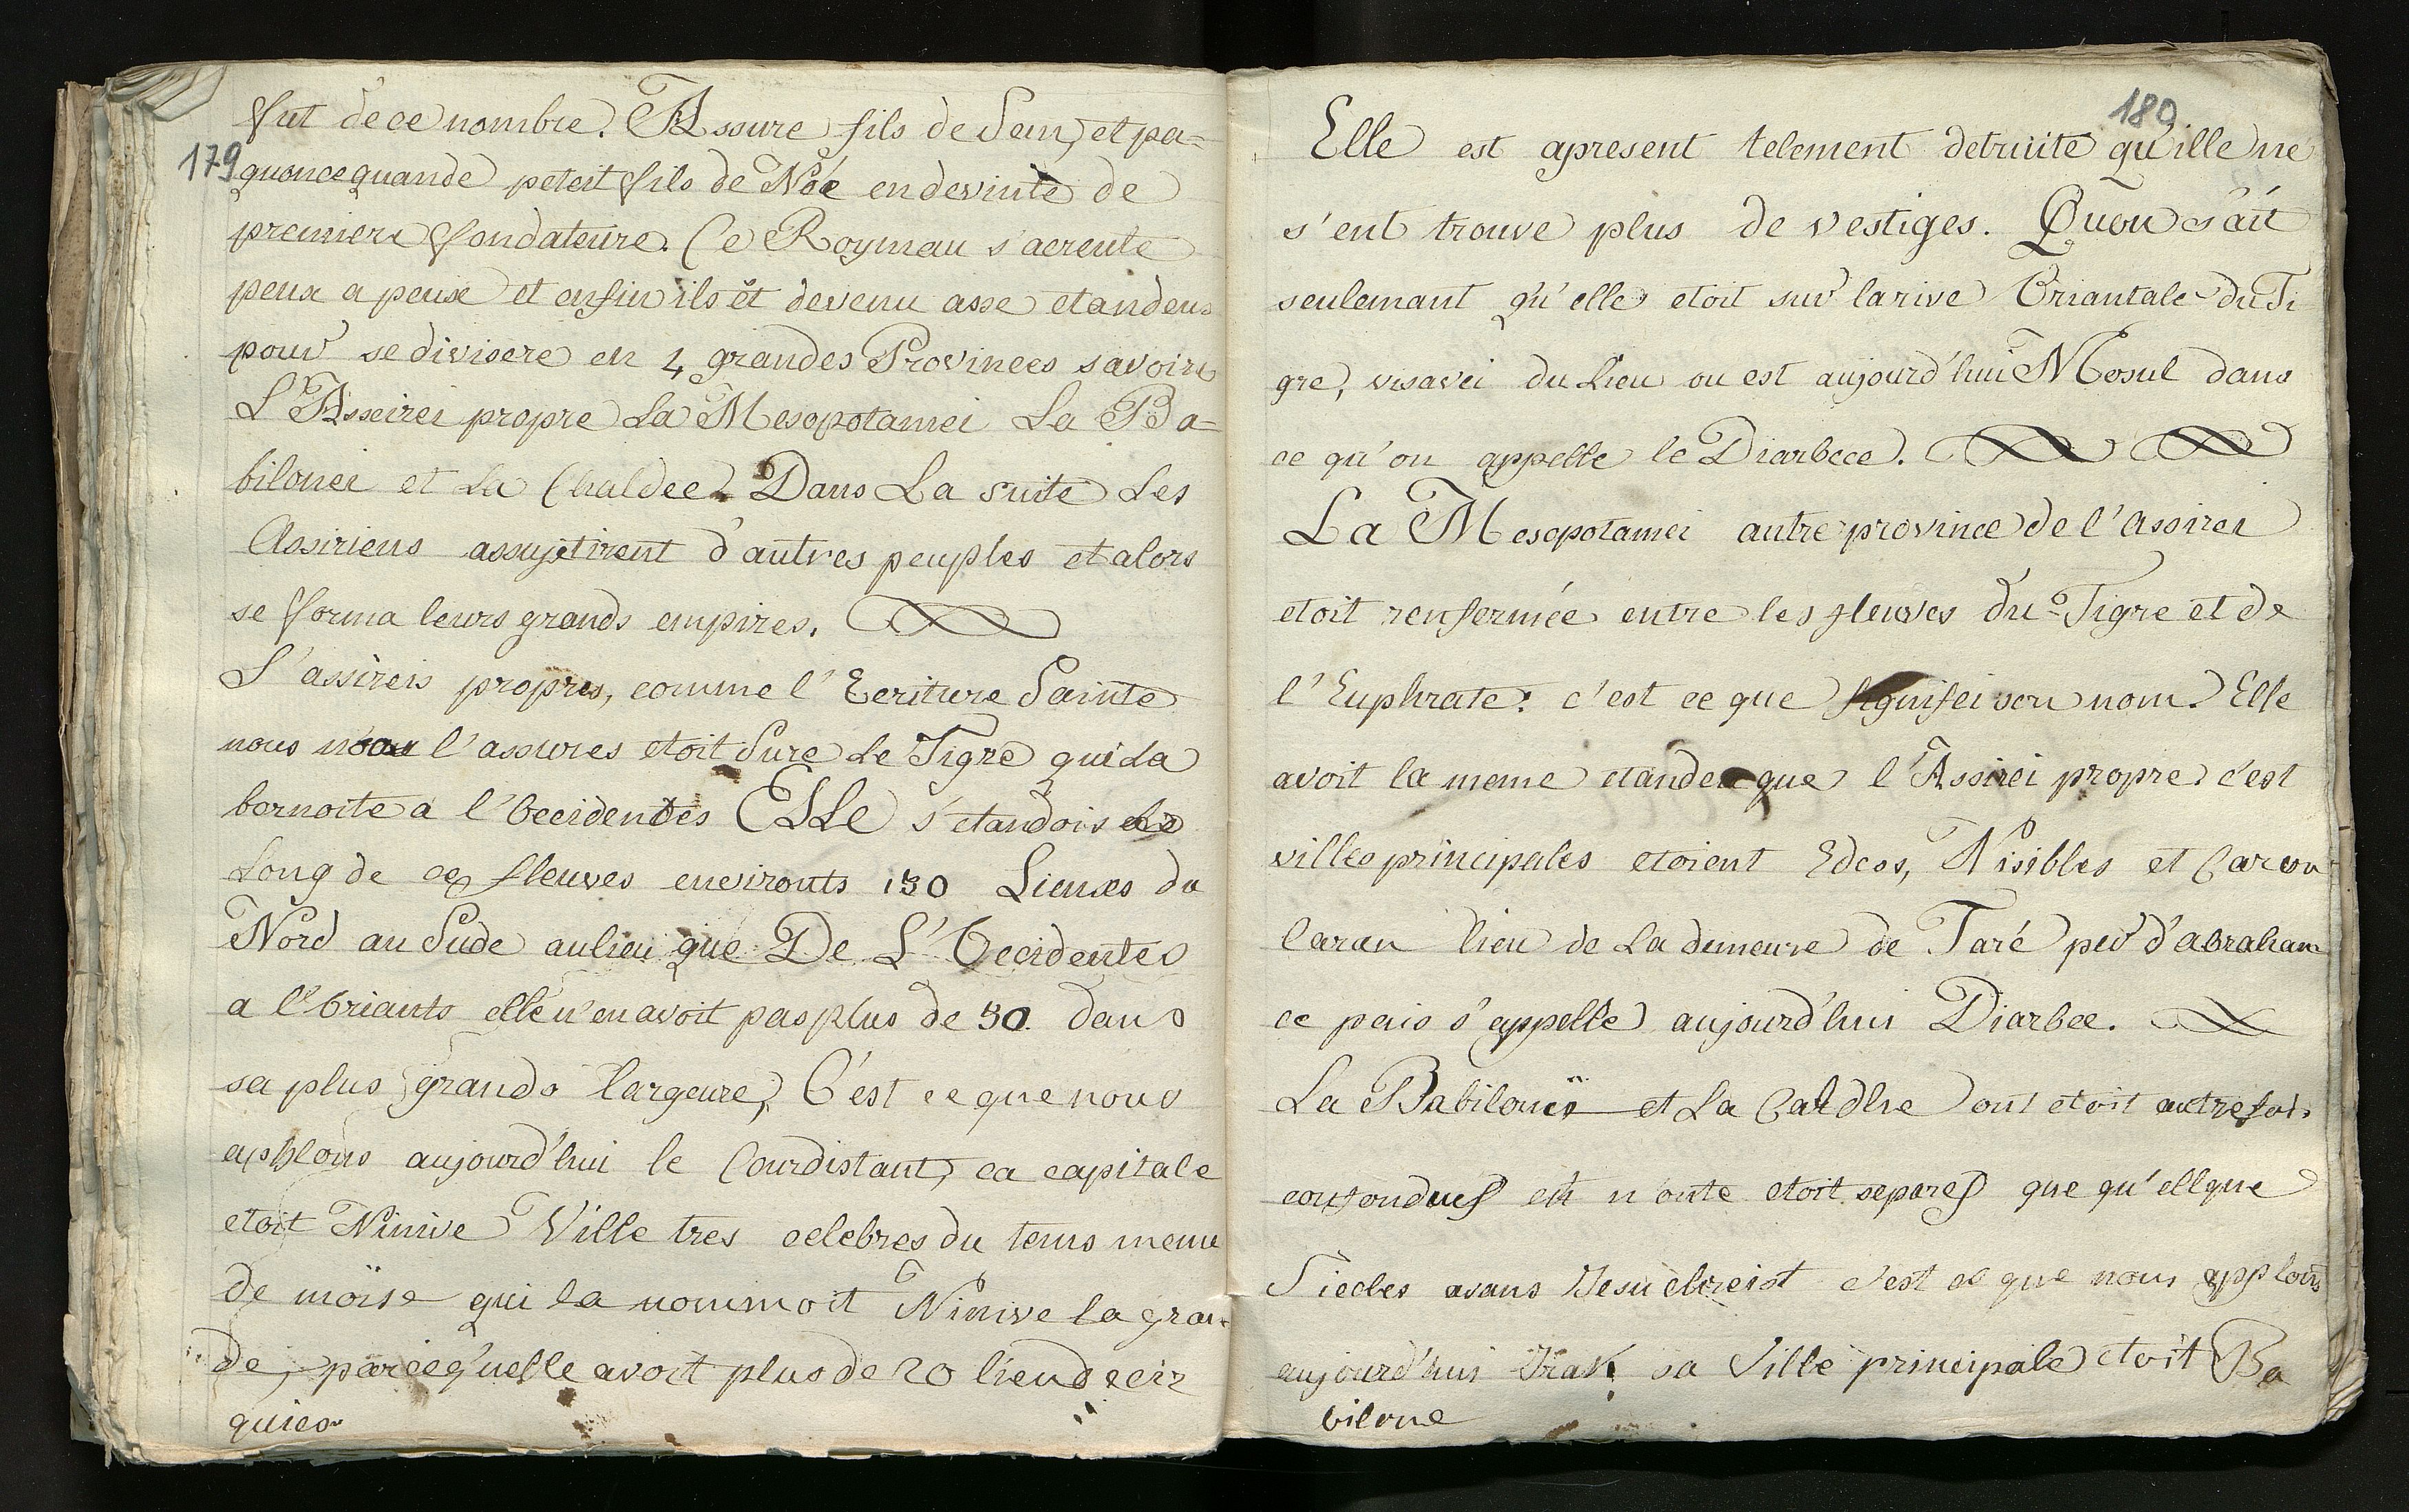 179
fut de ce nombre. Assure fils de Sem, et pa=
quonce quande peteit fils de Noé en devinte de
premiere fondateure. Ce Roymau s'acreute
peux a peux et enfin ils êt devenu asse etandeus
pour se divisere en 4 grandes Provinces savoire
L'Asseirei propre La Mesopotamei La Ba=
bilonei et La Chaldee. Dans La suite Les
Assiriens assujetirent d'autres peuples et alors
se forma leurs grands empires.
L'assireis propres, comme l'Ecriture Sainte
nous l'assures etoit Sure Le Tigre qui La
bornoite a l'Occidentes ELLe s'etandois
Long de ce fleuves environts 150 Lieuxes du
Nord au Sude au lieu que De L'Occidentes
a l'Oriants elle n'en avoit pas plus de 50. dans
sa plus grands largeure, C'est ce que nous
applons aujourd'hui le Courdistant, ca capitale
etoit Ninive Ville tres celebres du tems meme
de moïse qui la nommoit Ninive la gran-
de, parcequ'uelle avoit plus de 20 lieud ecir
quies
180
Elle est apresent telement detruite qu'ille ne
s'ent trouve plus de vestiges. Quon s'ait
seulemant qu'elle etoit sur la rive Oriantale du Ti
gre, visavei du Lieu ou est aujourd'hui Mosul dans
ce qu'on appelle le Diarbece.
La Mesopotamei autre province de l'Assirei
etoit renfermée entre les fleuves du Tigre et de
l'Euphrate: c'est ce que signifei son nom. Elle
avoit la meme etandex que l'Assirei propre c'est
villes principales etoient Edcos, Nisibles et Caron
Caran lieu de La demeure de Taré per d'abraham
ce païs s'appelle aujourd'hui Diarbee.
La Babilonië et La Caldhe ont etoit autrefois
confondues et n'onte etoit separes que qu'ellque
Siecles avans Jesu chreist c'est ce que nous applons
aujourd'hui Irak, sa Ville principale etoit Ba
bilone